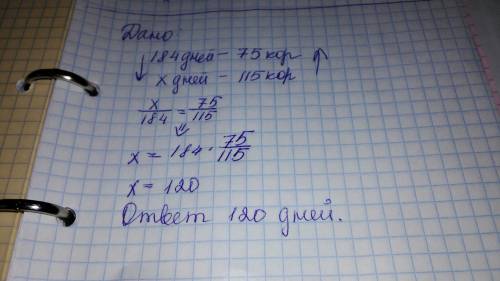 Дано
↓ 184 дней – 75 кор ↑
x дней – 115 кор
x/184 = 75/115
⇓
x = 184 · 75/115
x = 120
Ответ 120 дней.